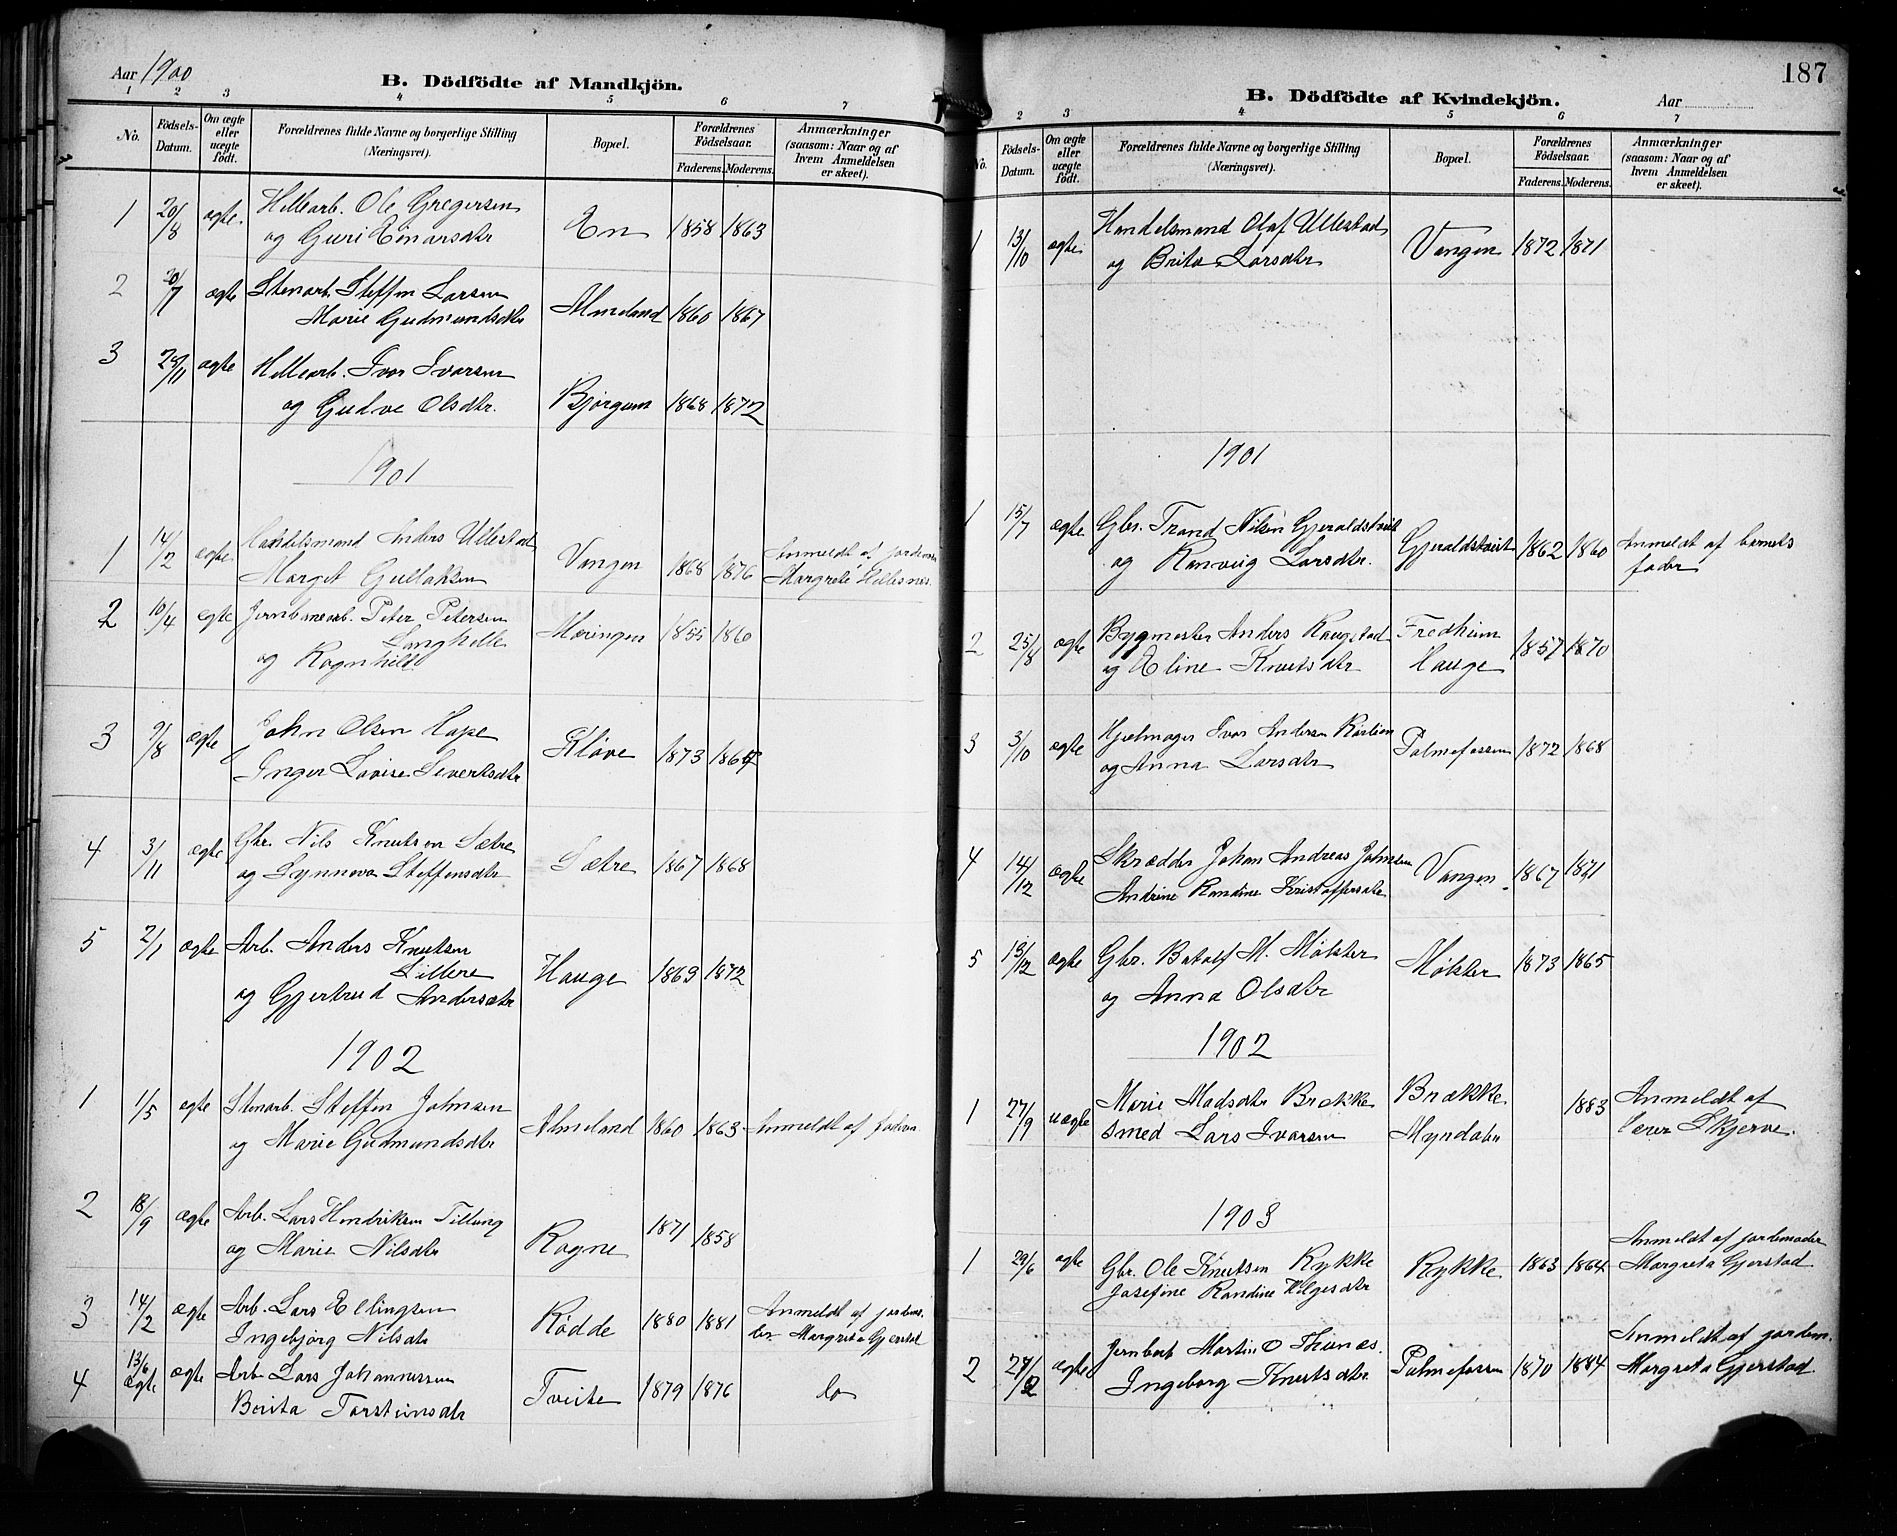 Aar 1900
B. Dödfödte af Mandkjön.
1 2 3 4 5 6 7
No.
Födsels-Datum.
Om ægte eller uægte født.
Forældrenes fulde Navne og borgerlige Stilling (Næringsvei).
Bopæl.
Forældrenes Födselsaar.
Faderens. Moderens.
Anmærkninger (saasom: Naar og af hvem Anmeldelsen er skeet).
1 20/8 ægte Hellearb. Ole Gregersen
og Guri Einarsdtr En 1858 1863
2 20/7 ægte Stenarb. Steffen Larsen
Marie Gudmundsdtr Almeland 1860 1867
3 ægte Hellearb. Ivar Ivarsen
og Gudve Olsdtr. Bjørgum 1868 1872
1901
1 14/2 ægte Handelsmand Anders Ullestad Vangen 1868 1876 Anmeldt af jordem
Marget Gullaksen Margrete
2 10/4 ægte Jernbanearb. Peter Petersen
Langhelle
og Ragnhild Mæringen 1855 1860
3 9/8 ægte John Olsen Hape
Inger Lovise Severtsdtr Kløve 1873
4 3/11 ægte Gbr. Nils Knutson Sætre
og Synneva Steffensdtr Sætre 1867 1868
5 2/1 ægte Arb. Anders Knutsen
Lillere
og Gjertrud Andersdtr Hauge 1869 1872
1902
1 1/5 ægte Stenarb. Steffen Johnsen
og Marie Gudmundsdtr Almeland 1860 1863 Anmeldt af faderen
2 18/9 ægte Arb. Lars Hendriksen Tillung
og Marie Nilsdtr Rogne 1871 1858
3 14/2 ægte Arb. Lars Ellingsen
Ingebjørg Nilsdtr Rødde 1880 1881 Anmeldt af jordemo-
der Margreta Gjerstad
4 13/6 ægte ægte Arb. Lars Johannessen
Berita Torsteinsdtr Tveite 1879 1876 do
187
B. Dödfödte af Kvindekjön.
Aar
2 3 4 5 6 7
No.
Födsels-Datum.
Om ægte eller uægte født.
Forældrenes fulde Navne og borgerlige Stilling (Næringsvei).
Bopæl.
Forældrenes Födselsaar.
Faderens. Moderens.
Anmærkninger (saasom: Naar og af hvem Anmeldelsen er skeet).
1 13/10 ægte Handelsmand Olaf Ullestad
og Brita Larsdtr Vangen 1872 1871
1901
1 15/7 ægte Gbr. Trond Nilsen Gjeraldstveit
og Ranveig Larsdtr. Gjeraldstveit 1862 1860 Anmeldt af barnets
fader
2 25/8 ægte Bygmester Anders Raugstad
og Eline Knutsdtr Fredheim
Hauge 1857 1870
3 3/10 ægte Hjulmager Ivar Andersen
og Anna Larsdtr Palmefossen 1872 1868
4 14/12 ægte Skrædder Johan Andreas Johnsen
Andrine Randine Kristoffersdtr Vangen 1867 1871
5 13/12 ægte Gbr. Botolf M. Mølster
og Anna Olsdtr Mølster 1873 1865
1902
1 27/9 uægte Marie Madsdtr Brække
Smed Lars Ivarsen Brække
Myndalen 1883 Anmeldt af
lærer Skjerve.
1903
1 29/6 ægte Gbr. Ole Knutsen Rykke
Josefine Randine Helgesdtr Rykke 1863 1864 Anmeldt af jordemoder
Margreta Gjerstad
2 ægte Jernbarb Martin O Thunes.
Ingeborg Knutsdtr Palmefossen 1870 1884 Anmeldt af jordem.
Margreta Gjerstad